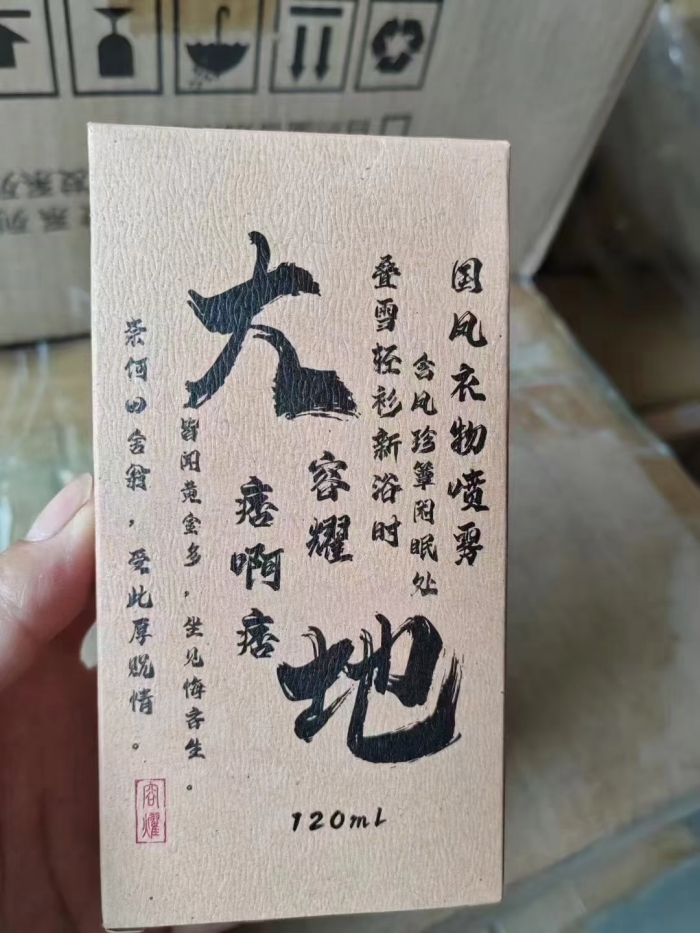 国风衣物喷雾
含风珍簟闲眠处
叠雪轻衫新浴时
大地
容耀
痞啊痞
皆闻黄金多，坐见悔吝生。
奈何田舍翁，受此厚贶情。
容耀
120mL